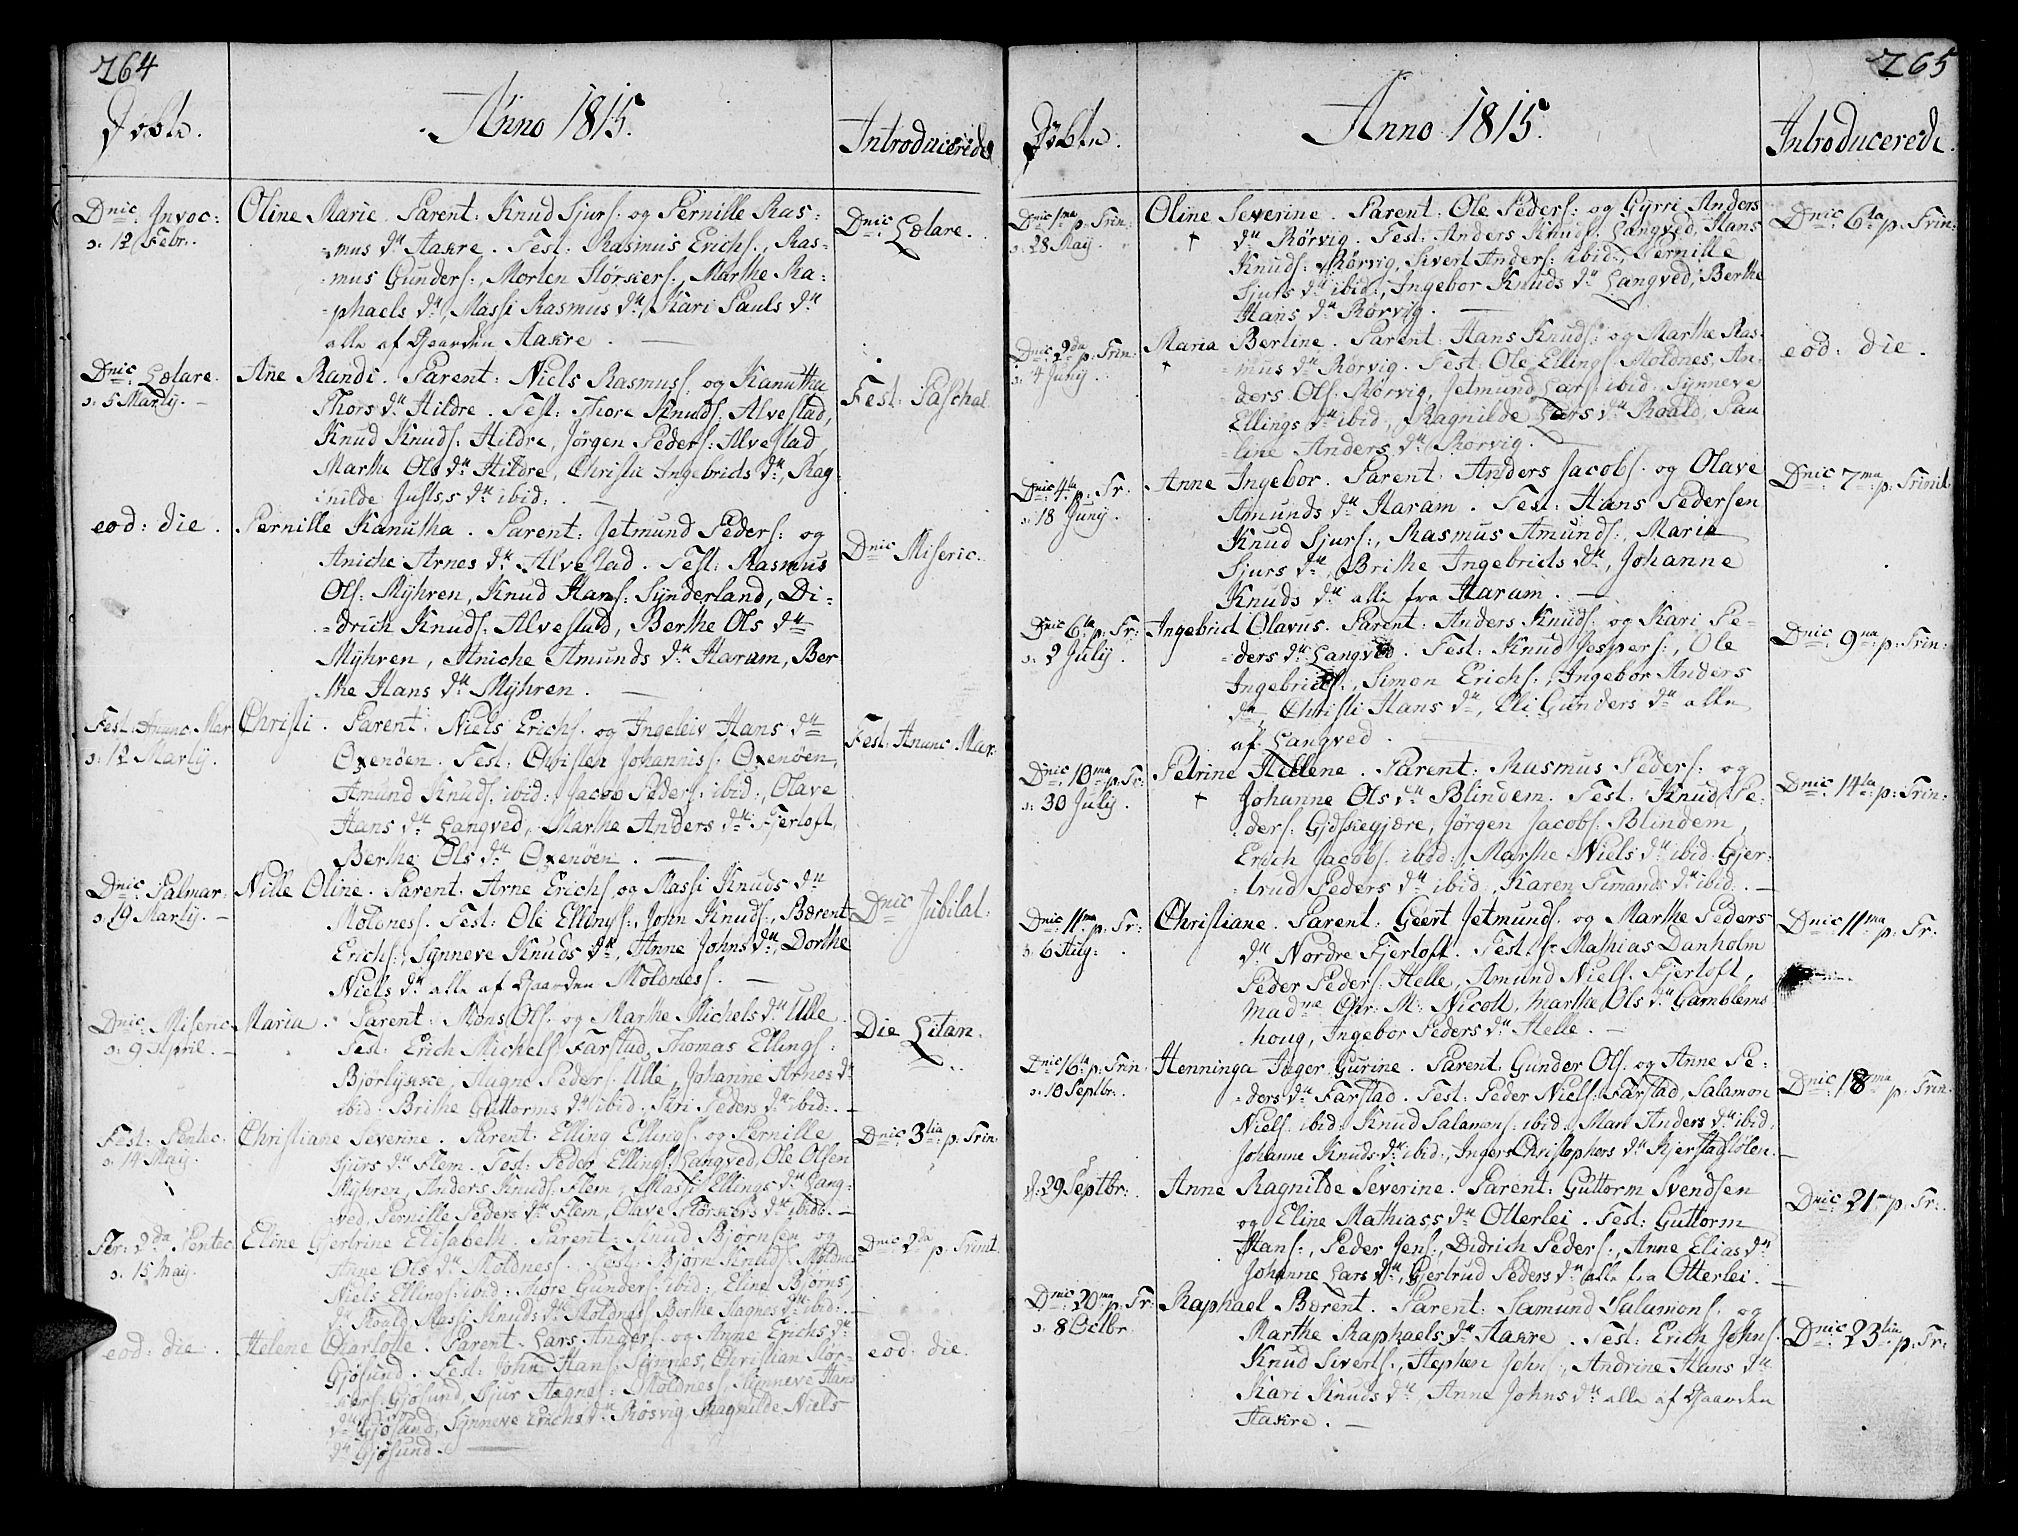 264
Döbte.
Anno 1815.
Introducerede
Dnic: Invoc:
ɔ: 12 Febr:.
Oline Marie. Parent: Knud Sjurs. og Pernille Ras=
=mus dtr Aakre. Test: Rasmus Erichs., Ras=
=mus Gunders:, Morten Storkiers:, Marthe Ra=
=phaels dtr, Massi Rasmus dtr, Kari Pauls dtr
alle af Gaarden Aakre.
Dnic: Lætare.
Dnic: Lætare.
ɔ: 5 Martij.
Ane Randi. Parent: Niels Rasmus. og Kanutha
Thors dtr Hildre. Test: Thore Knuds. Alvestad,
Knud Knuds: Hildre, Jørgen Peders: Alvestad
Marthe Ols dtr Hildre, Christie Ingebrids dtr, Rag
nilde Justss dtr ibid:.
Fest: Paschal.
eod: die.
Pernille Kanutha. Parent: Jetmund Peders: og
Aniche Arnes dtr Alvestad. Test: Rasmus
Ols: Mÿhren, Knud Hans: Synderland, Di=
=drich Knuds: Alvestad, Berthe Ols dtr
Mÿhren, Aniche Amunds dtr Haram, Ber
the Hans dtr Mÿhren.
Dnic Miseric.
Fest: Anunc: Mar
ɔ: 12 Martij.
Christi. Parent: Niels Erichs. og Ingeleiv Hans dtr
Oxenöen. Test: Christen Johannis. Oxenöen,
Amund Knuds. ibid:, Jacob Peders. ibid:, Olave
Hans dtr Langved, Marthe Anders dtr Fjertoft,
Berthe Ols dtr Oxenöen.
Fest: Anunc: Mar:
Dnic: Palmar:
ɔ: 19 Martij.
Nille Oline. Parent: Arne Erichs. og Massi Knuds dtr
Moldness. Test: Ole Ellings:, John Knuds:, Bærent
Erichs:, Synneve Knuds dtr, Anne Johns dtr, Dorthe
Niels dtr alle af Gaarden Moldness.
Dnic Jubilat:
Dnic: Miseric
ɔ: 9 April.
Maria. Parent: Mons Ols. og Marthe Michels dtr Ulle.
Test: Erich Michels: Farstad, Thomas Ellings:
Bjorlykke, Hagne Peders: Ulle, Johanne Arnes dtr
ibid: Brithe Guttorms dtr ibid: Siri Peders dtr ibid:.
Die Litan.
Fest: Pentec:
ɔ: 14 Maij.
Christiane Severine. Parent: Elling Ellings. og Pernille
Sjurs dtr Flem. Test: Peder Ellings: Langved, Ole Olsen
Mÿhren, Anders Knuds: Flem, Massi Ellings dtr Lang=
ved, Pernille Peders dtr Flem, Olave Storkiers dtr ibid:.
Dnic 3tia p: Trin.
Fer: 2da Pentec
ɔ: 15 Maij.
Eline Gjertrine Elisabeth. Parent: Knud Bjornsen og
Anne Ols dtr Moldness. Test: Bjørn Knuds: Moldnes
Niels Ellings: ibid: Thore Gunders: ibid: Eline Bjorns
dtr Roald, Massi Knuds dtr Moldness, Berthe Hagnes dtr ibid:.
Dnic 2da p: Trinit.
eod: die.
Helene Charlotte. Parent: Lars Angers. og Anne Erichs dtr
Gjösund. Test: John Hans: Synnes, Christian Stor=
kers: Gjösund, Sjur Hagnes: Moldnes, Synneve Hans
dtr Gjösund, Synneve Erichs dtr Rösvig, Ragnilde Niels
dtr Gjösund.
eod: die.
265
Döbte.
Anno 1815.
Introducerede.
Dnic 1ma p: Trin:
ɔ: 28 Maij
Oline Severine. Parent: Ole Peders: og Gyrri Anders
† dtr Rörvig. Test: Anders Knuds. Langved, Hans
Knuds: Rörvig, Sivert Anders: ibid:, Pernille
Sjurs dtr ibid:, Ingebor Knuds dtr Langved, Berthe
Hans dtr Rörvig.
Dnic: 6ta p: Trin:
Dnic 2da p: Trin:
ɔ: 4 Junij
Maria Bertine. Parent: Hans Knuds: og Marthe Ras=
† =mus dtr Rörvig. Test: Ole Ellings. Moldnes, An=
ders Ols: Rörvig, Jetmund Lars: ibid: Synneve
Ellings dtr ibid, Ragnilde Lars dtr Roald, Pau
=line Anders dtr Rorvig.
eod: die.
Dnic: 4ta p: Tr.
ɔ: 18 Junij.
Anne Ingebor. Parent: Anders Jacobs. og Olave
Amunds dtr Haram. Test: Hans Pedersen
Knud Sjurs:, Rasmus Amunds:, Maria
Sjurs dtr, Brithe Ingebrids dtr, Johanne
Knuds dtr alle fra Haram.
Dnic: 7ma p: Trinit.
Dnic 6ta p: Tr:
ɔ: 2 Julij.
Ingebrid Olavus. Parent: Anders Knuds. og Kari Pe=
=ders dtr Langved. Test: Knud Jespers:, Ole
Ingebrids:, Simon Erichs:, Ingebor Anders
dtr, Christi Hans dtr, Eli Gunders dtr alle
af Langved.
Dnic: 9na p: Trin:
Dnic 10ma p: Tr:
ɔ: 30 Julij.
Petrine Hellene. Parent: Rasmus Peders: og
† Johanne Ols dtr Blindem. Test: Knud Pe=
ders: Gidskegjære, Jørgen Jacobs: Blindem,
Erich Jacobs. ibid:, Marthe Niels dtr ibid Gjer=
=trud Peders dtr ibid, Karen Timands dtr ibid.
Dnic: 14ta p: Trin:
Dnic: 11ma p: Tr:
ɔ: 6 Aug:.
Christiane. Parent: Geert Jetmunds. og Marthe Peders
dtr Nordre Fjertoft. Test: Sr: Mathias Danholm
Peder Peders: Helle, Amund Niels: Fjertoft,
Madme Chr: M: Nicoll, Marthe Ols dtr Gamblems
houg, Ingebor Peders dtr Helle.
Dnic: 11ma p: Tr.
Dnic: 16ta p: Trin
ɔ: 10 Septbr:.
Henninga Inger Gurine. Parent: Gunder Ols. og Anne Pe=
=ders dtr Farstad. Test: Peder Niels: Farstad, Salamon
Niels: ibid: Knud Salamons: ibid: Mari Anders dtr ibid:
Johanne Knuds dtr ibid:, Ingers Christophers dtr Kjerstadfløten.
Dnic: 18ma p: Trin:
d: 29 Septbr:
Anne Ragnilde Severine. Parent: Guttorm Svendsen
og Eline Mathiass dtr Otterlei. Test: Guttorm
Hans:, Peder Jens:, Didrich Peders:, Anne Elias dtr
Johanne Lars dtr, Gjertrud Peders dtr alle fra Otterlei.
Dnic: 21ma p: Tr:
Dnic: 20ma p: Tr:
ɔ: 8 Octbr
Raphael Bærent. Parent: Samund Salamons. og
Marthe Raphaels dtr Aakre. Test: Erich Johns.
Knud Siverts:, Stephen Johns:, Andrine Hans dtr
Kari Knuds dtr, Anne Johns dtr alle af Gaarden
Aakre.
Dnic: 23tia p: Tr: